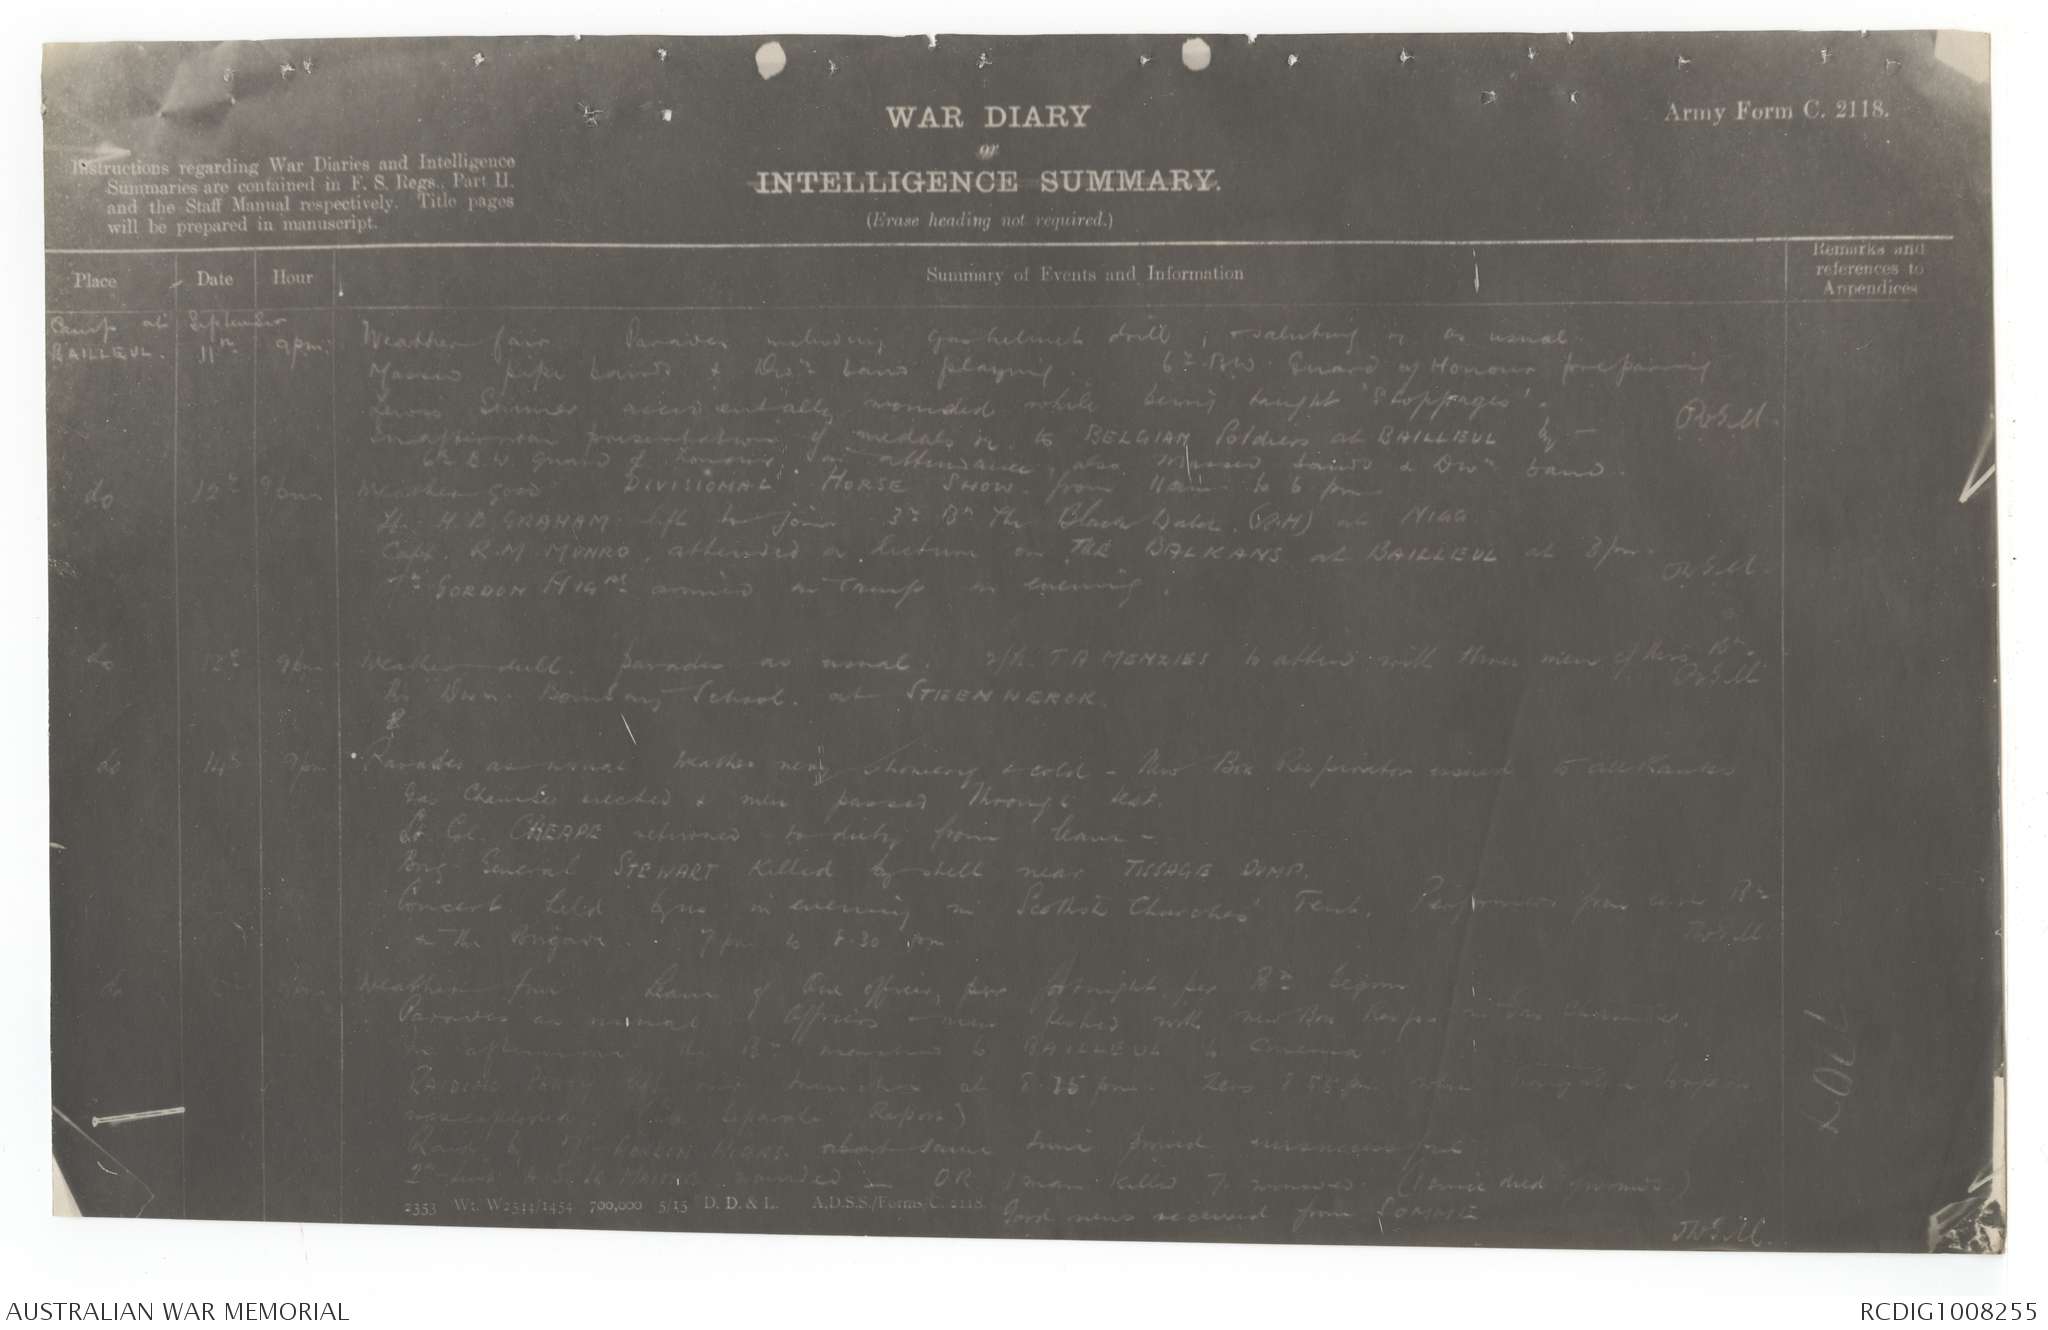 Army Form C. 2118.
WAR DIARY
or
INTELLIGENCE SUMMARY.
(Erase heading not required.)
Instructions regarding War Diaries and Intelligence
Summaries are contained in F. S. Regs., Part II.
and the Staff Manual respectively. Title pages
will be prepared in manuscript.
Place
Date
Hour
Summary of Events and Information
Remarks and
references to
Appendices
Camp at BAILLEUL.
September 11th
9pm.
Weather fair Parades including gas helmet drill, saluting as usual.
Massed pipe bands & Divn band playing. 6th B.W. Guard of Honour preparing
accidentally wounded while being taught 'stoppages'.
In afternoon presentation of medals to BELGIAN Soldiers at BAILLEUL by -
6th B.W. guard of honour in attendance, also Massed bands & Divn band.
do 12th 9pm Weather good DIVISIONAL HORSE SHOW. from 11am to 6 pm
Lt. H. D. GRAHAM left to join 3rd Bn The Black Watch (RH) at NIGG
Capt. R. M. MUNRO attended a lecture on THE BALKANS at BAILLEUL at 3pm.
7th GORDON HIGRS arrived in camp in evening.
do 9pm Weather dull. parades as usual. 2/Lt. T A MENZIES to attend with three men of this Bn.
Divn. Bombing School. at STEENWERCK.
do 14th 9pm Parades as usual Weather very showery & cold - New Box Respirator issued to all Ranks
Gas Chamber erected & men passed through test.
Lt Col. CHEAPE returned to duty from leave -
Brig General STEWART killed by shell near TISSAGE DUMP.
Concert held in evening in Scottish Churches' Tent. Performers from Bn
& the Brigade. 7 pm to 8.30 pm.
do Weather fair Leave of One officer per fortnight per Bn begins
Parades as usual Officers & men tested with new Box Resps in Gas Chamber.
In afternoon the Bn marched to BAILLEUL to Cinema
RAIDING PARTY left our trenches at 8.35 pm. Zero 8.55 pm when
was exploded. Separate Report)
Raid by 7th GORDON HIGRS. about same time proved unsuccessful
wounded OR 1 man killed 7 wounded. (1 since died of wounds)
Good news received from SOMME
2353 Wt. W2544/1454 700,000 5/15 D. D. & L. A.D.S.S./Forms/C. 2118.
AUSTRALIAN WAR MEMORIAL
RCDIG1008255